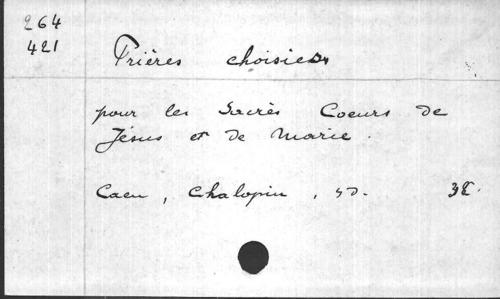 264
421
Prières choisies
pour les Sacrés Coeurs de
Jésus et de Marie.
Caen, Chalopin, sd.